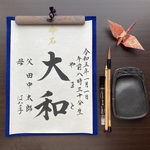 命名
令和五年一月一日
午前八時三十分生
やまと
大和
父 田中太郎
母